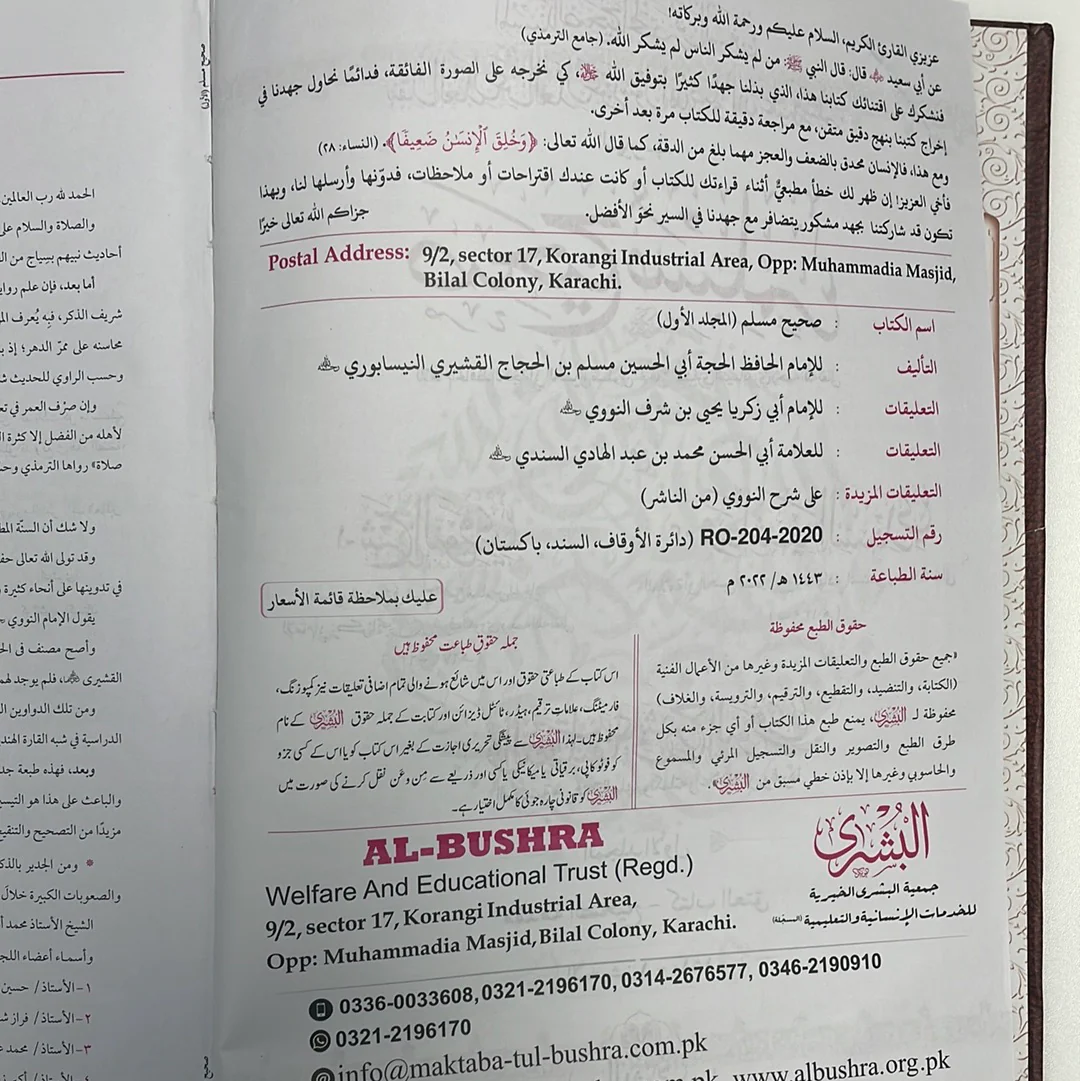 عزيزي القارئ الكريم، السلام عليكم ورحمة الله وبركاته!
عن أبي سعيد ﷺ قال: قال النبي ﷺ: من لم يشكر الناس لم يشكر الله. (جامع الترمذي)
فنشكرك على اقتنائك كتابنا هذا، الذي بذلنا جهدًا كثيرًا بتوفيق الله ﷻ، كي نخرجه على الصورة الفائقة، فدائمًا نحاول جهدنا في
إخراج كتبنا بنهج دقيق متقن، مع مراجعة دقيقة للكتاب مرة بعد أخرى.
ومع هذا، فالإنسان محدق بالضعف والعجز مهما بلغ من الدقة، كما قال الله تعالى: ﴿وَخُلِقَ ٱلْإِنسَٰنُ ضَعِيفًا﴾. (النساء: ٢٨)
فأخي العزيز! إن ظهر لك خطأ مطبعيٌّ أثناء قراءتك للكتاب أو كانت عندك اقتراحات أو ملاحظات، فدوّنها وأرسلها لنا، وبهذا
تكون قد شاركتنا بجهد مشكور يتضافر مع جهدنا في السير نحوَ الأفضل. جزاكم الله تعالى خيرًا
Postal Address: 9/2, sector 17, Korangi Industrial Area, Opp: Muhammadia Masjid,
Bilal Colony, Karachi.
اسم الكتاب : صحيح مسلم (المجلد الأول)
التأليف : للإمام الحافظ الحجة أبي الحسين مسلم بن الحجاج القشيري النيسابوري
التعليقات : للإمام أبي زكريا يحيي بن شرف النووي
التعليقات : للعلامة أبي الحسن محمد بن عبد الهادي السندي
التعليقات المزيدة : على شرح النووي (من الناشر)
رقم التسجيل : RO-204-2020 (دائرة الأوقاف، السند، باكستان)
سنة الطباعة : ١٤٤٣ هـ/ ٢٠٢٢ م
عليك بملاحظة قائمة الأسعار
حقوق الطبع محفوظة
«جميع حقوق الطبع والتعليقات المزيدة وغيرها من الأعمال الفنية
(الكتابة، والتنضيد، والتقطيع، والترقيم، والترويسة، والغلاف)
محفوظة لـ البشرى، يمنع طبع هذا الكتاب أو أي جزء منه بكل
طرق الطبع والتصوير والنقل والتسجيل المرئي والمسموع
والحاسوبي وغيرها إلا بإذن خطي مسبق من البشرى».
جملہ حقوقِ طباعت محفوظ ہیں
اس کتاب کے طباعتی حقوق اور اس میں شائع ہونے والی تمام اضافی تعلیقات نیز کمپوزنگ،
فارمیٹنگ، علاماتِ ترقیم، ہیڈر، ٹائٹل ڈیزائن اور کتابت کے جملہ حقوق البشریٰ کے نام
محفوظ ہیں۔ لہٰذا البشریٰ سے پیشگی تحریری اجازت کے بغیر اس کتاب کو یا اس کے کسی جزو
کو فوٹو کاپی، برقیاتی یا میکانیکی یا کسی اور ذریعے سے مِن وعَن نقل کرنے کی صورت میں
البشریٰ کو قانونی چارہ جوئی کا مکمل اختیار ہے۔
AL-BUSHRA
Welfare And Educational Trust (Regd.)
9/2, sector 17, Korangi Industrial Area,
Opp: Muhammadia Masjid, Bilal Colony, Karachi.
البُشرى
جمعية البشرى الخيرية
للخدمات الإنسانية والتعليمية (المسجلة)
0336-0033608, 0321-2196170, 0314-2676577, 0346-2190910
0321-2196170
info@maktaba-tul-bushra.com.pk
www.albushra.org.pk
صحيح مسلم (الأول)
الحمد لله رب العالمين
والصلاة والسلام على
أحاديث نبيهم بسِياج من
أما بعد، فإن علم
شريف الذكر، فبِه يُعرف
محاسنه على ممرّ الدهر؛ إذ
وحسب الراوي للحديث
وإن صرْف العمر في
لأهله من الفضل إلا كثرة
صلاة» رواها الترمذي
ولا شك أن السنّة
وقد تولى الله تعالى
في تدوينها على أنحاء كثيرة
يقول الإمام النووي
وأصح مصنف في
القشيري، فلم يوجد لهما
ومن تلك الدواوين
الدراسية في شبه القارة
وبعد، فهذه طبعة
والباعث على هذا هو
مزيدًا من التصحيح والتنقيح
• ومن الجدير
والصعوبات الكبيرة خلال
الشيخ الأستاذ محمد
وأسماء أعضاء
١-الأستاذ/ حسين
٢-الأستاذ/ فراز
٣-الأستاذ/ محمد